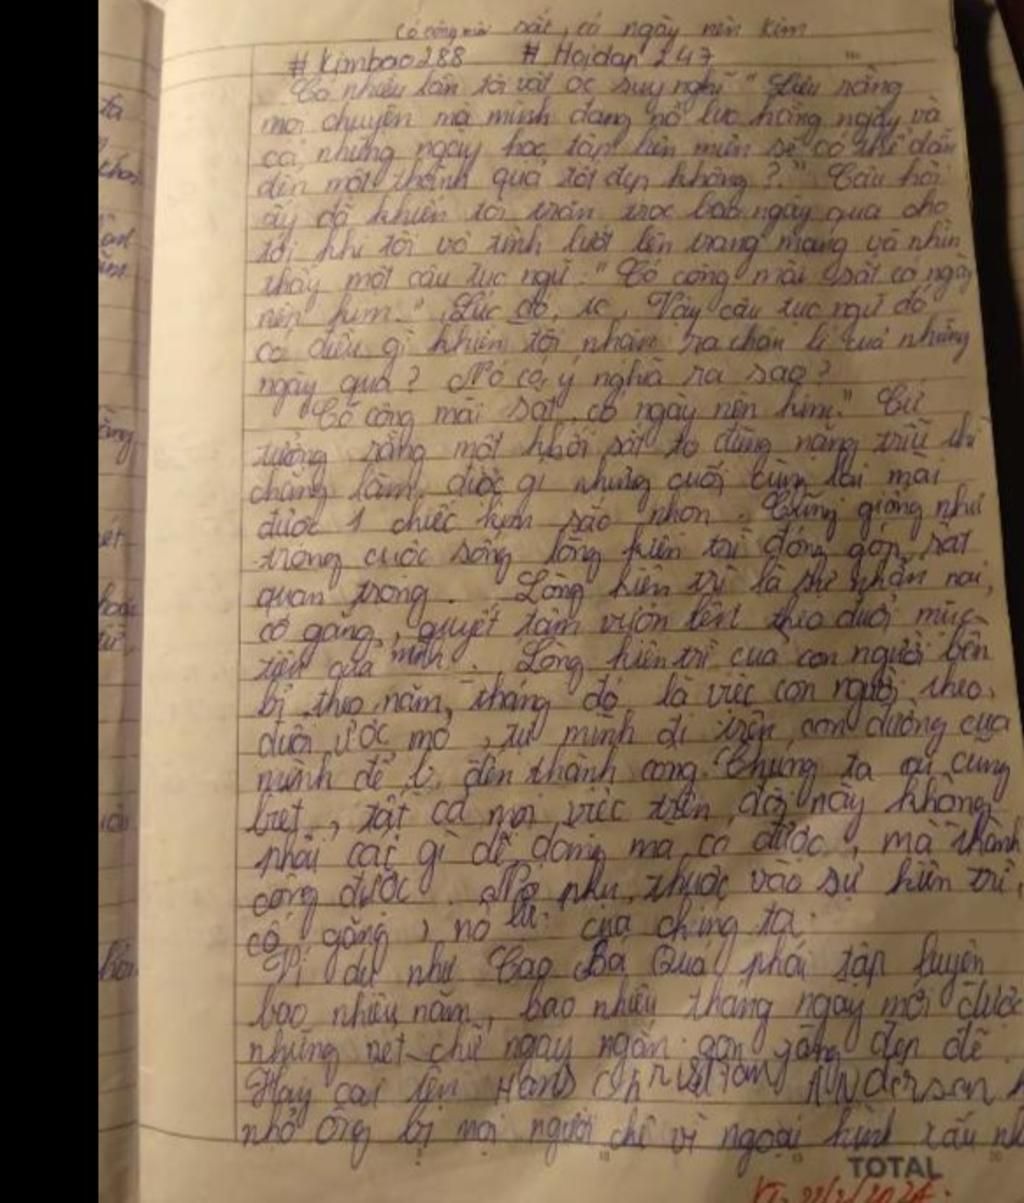 Có công mài sắt, có ngày nên kim
#Kimbao288 #Hoidap247
Có nhiều lần tôi vắt óc suy nghĩ " Liệu rằng
mọi chuyện mà mình đang nỗ lực hằng ngày và
cả những ngày học tập liên miên sẽ có thể dẫn
đến một thành quả tốt đẹp không?." Câu hỏi
ấy đã khiến tôi trằn trọc bao ngày qua cho
tới khi tôi vô tình lướt lên trang mạng và nhìn
thấy một câu tục ngữ: "Có công mài sắt có ngày
nên kim." Lúc đó, Vậy câu tục ngữ đó
có điều gì khiến tôi nhận ra chân lí của những
ngày qua? Nó có ý nghĩa ra sao?
"Có công mài sắt, có ngày nên kim." Cứ
tưởng rằng một khối sắt to đùng nặng trĩu thì
chẳng làm được gì nhưng cuối cùng lại mài
được 1 chiếc kim sắc nhọn. Cũng giống như
trong cuộc sống lòng kiên trì đóng góp rất
quan trọng. Lòng kiên trì là sự nhẫn nại,
cố gắng, quyết tâm vươn lên theo đuổi mục
tiêu của mình. Lòng kiên trì của con người bền
bỉ theo năm, tháng đó là việc con người theo
đuổi ước mơ, tự mình đi trên con đường của
mình để đến thành công. Chúng ta ai cũng
biết, tất cả mọi việc trên đời này không
phải cái gì dễ dàng mà có được, mà thành
công được. Nó phụ thuộc vào sự kiên trì,
cố gắng, nỗ lực của chúng ta.
Ví dụ như Cao Bá Quát phải tập luyện
bao nhiêu năm, bao nhiêu tháng ngày mới được
những nét chữ ngay ngắn gọn gàng đẹp đẽ.
Hay cái tên Hans Christian Andersen
nhỏ ông bị mọi người chê vì ngoại hình xấu
TOTAL